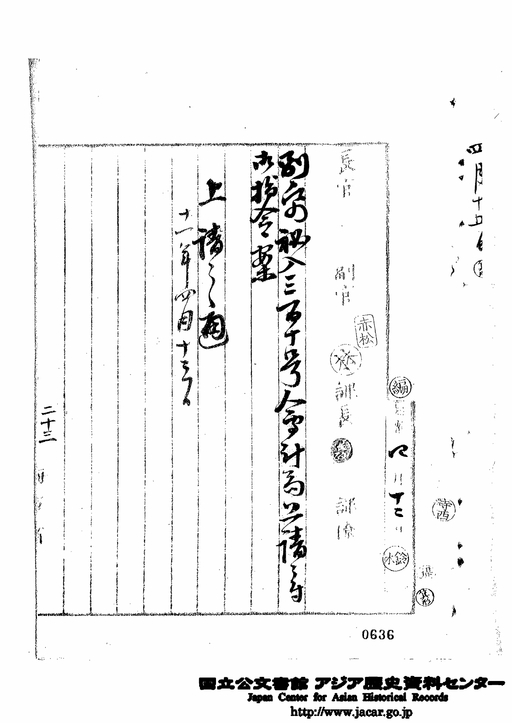 四月十五日
長官 副官 部長 部僚
赤松
編
四月十二日
水鈴
別帋秘入三百十号会計局上請ニ付
御指令案
上請之通
十一年四月十三日
二十三
0636
国立公文書館 アジア歴史資料センター
Japan Center for Asian Historical Records
http://www.jacar.go.jp